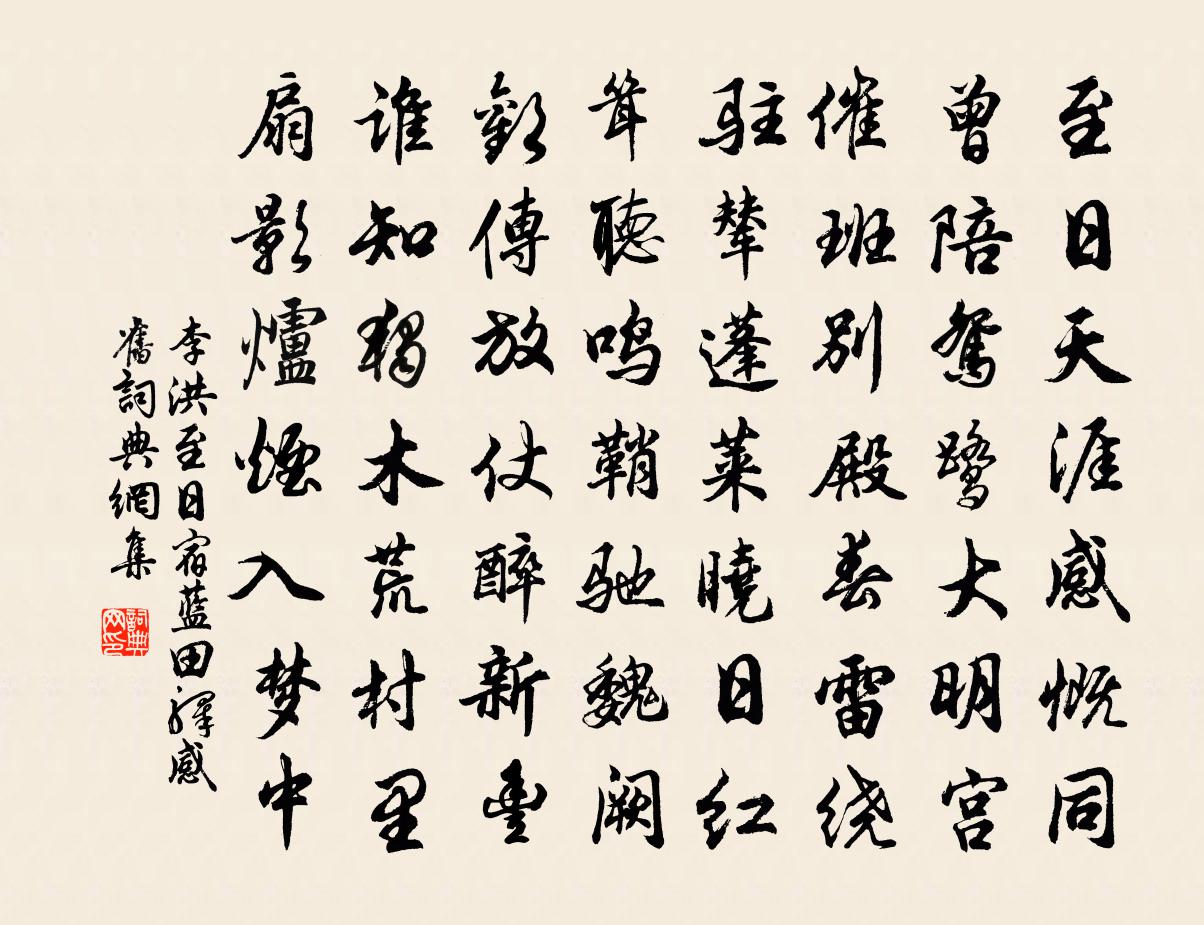 至日天涯感慨同
曾陪鸳鹭大明宫
催班别殿春雷绕
驻辇蓬莱晓日红
耸聽鸣鞘驰魏阙
歡傳放仗醉新豊
谁知独木荒村里
扇影爐煙入梦中
李洪至日宿藍田驛感
舊詞典網集
詞典
网印